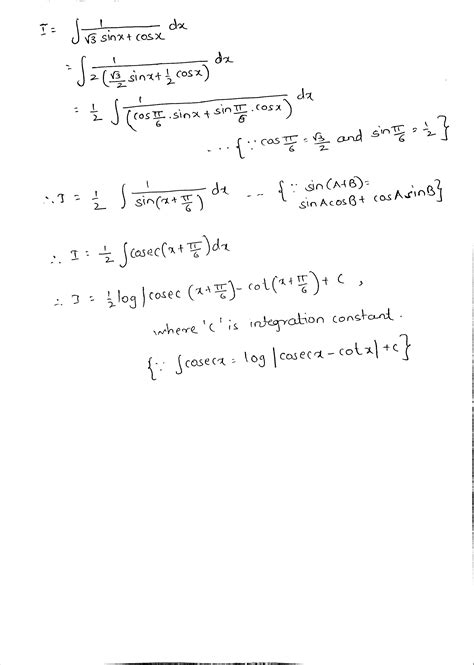 I = ∫ 1/(√3 sinx + cosx) dx
= ∫ 1/(2(√3/2 sinx + 1/2 cosx)) dx
= 1/2 ∫ 1/(cos π/6 . sinx + sin π/6 . cosx) dx
... {∵ cos π/6 = √3/2 and sin π/6 = 1/2}
∴ I = 1/2 ∫ 1/sin(x + π/6) dx ... {∵ sin(A+B) =
sinA cosB + cosA sinB}
∴ I = 1/2 ∫ cosec(x + π/6) dx
∴ I = 1/2 log |cosec (x + π/6) - cot (x + π/6) + C ,
where 'C' is integration constant.
{∵ ∫ cosecx = log |cosecx - cotx| + C}